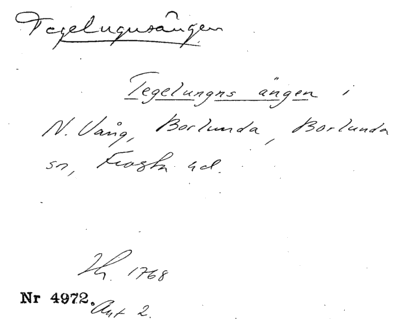 Tegelugnsängen
Tegelungns ängen i
N. Vång, Borlunda, Borlunda
sn, Frosta hd.
1768
Nr 4972.
Akt 2.